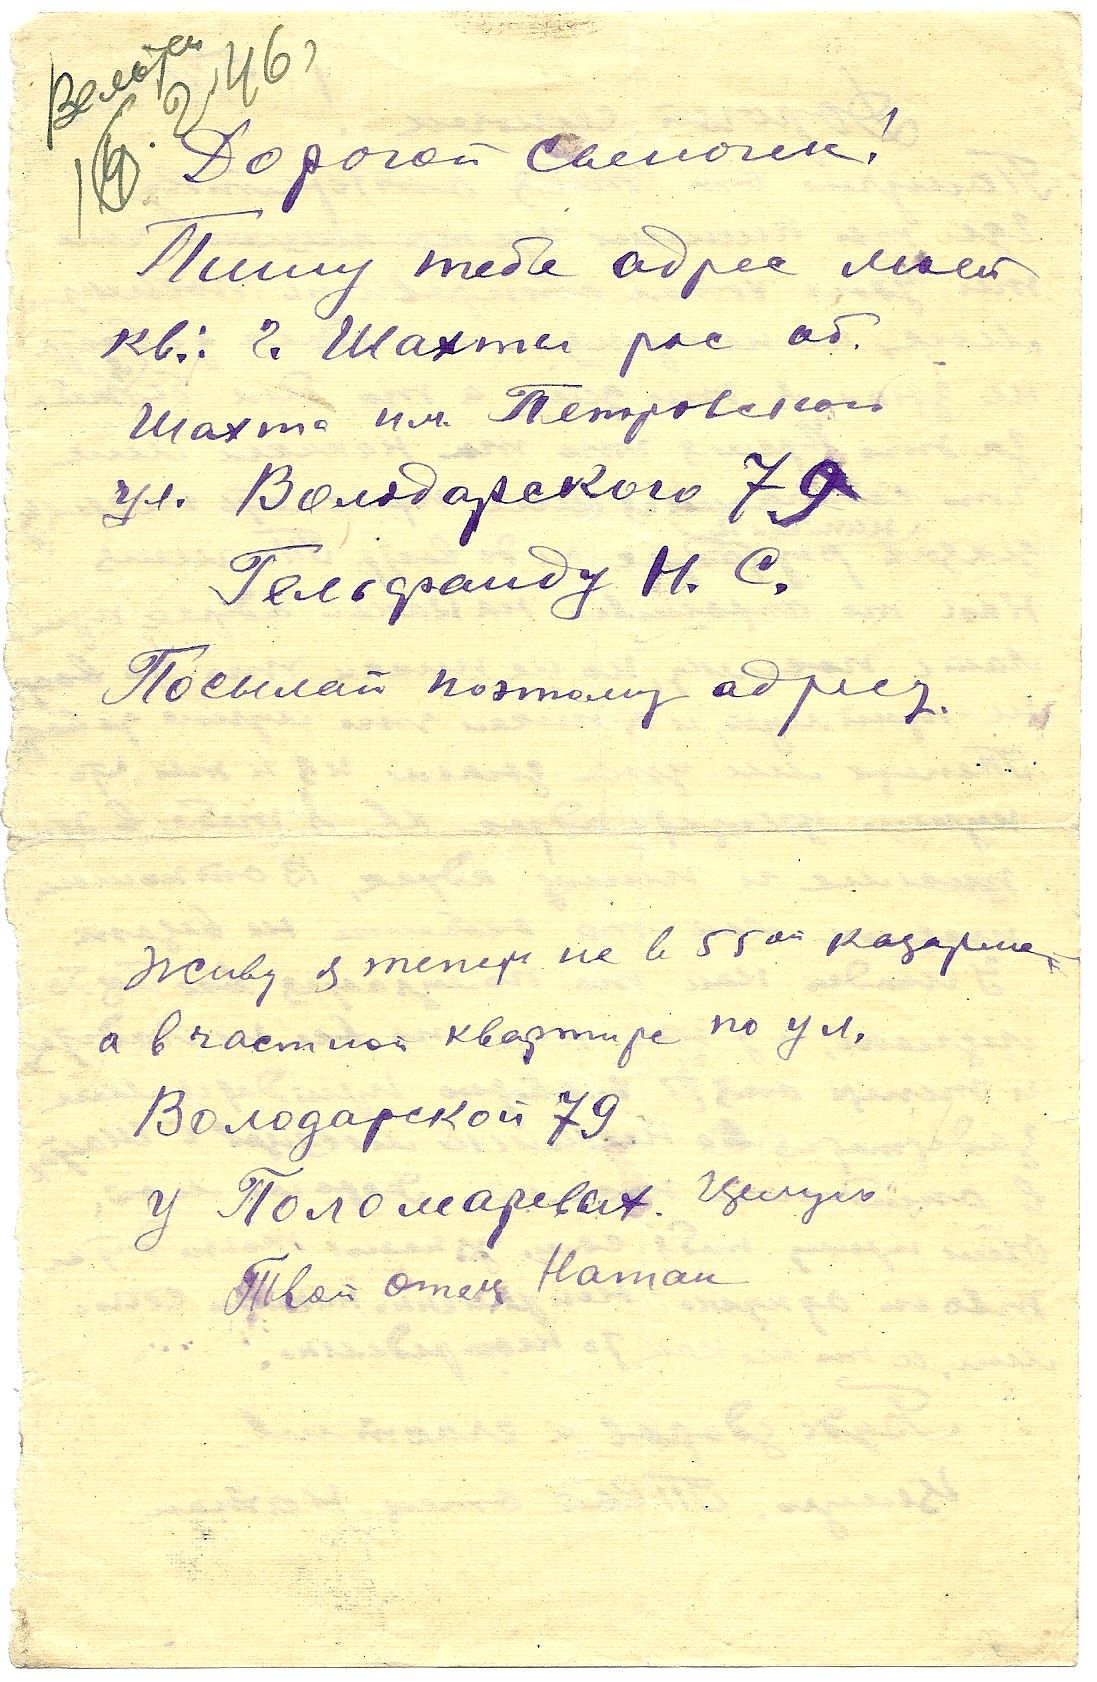 16. 2. 46
Дорогой сыночек!
Пишу тебе адрес моей
кв.: г. Шахты рос об.
Шахта им. Петровского
ул. Володарского 79
Гельфанду Н. С.
Посылай поэтому адресу.
Живу я теперь не в 55ой казарме,
а в частной квартире по ул.
Володарской 79
у Поломаревых. Целую
Твой отец Натан